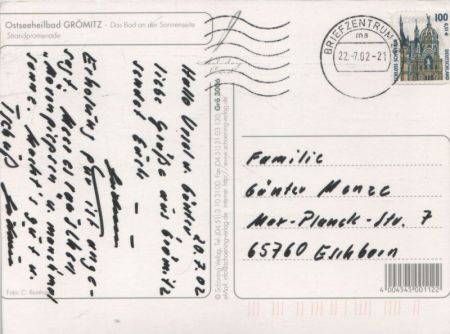 Ostseeheilbad GRÖMITZ - Das Bad an der Sonnenseite
Strandpromenade
22.7.02
Hallo Ursel u. Günter
liebe Grüße aus Grömitz
sendet Euch -
Erholung pur ist ange-
sagt. Meeresrauschen
u. manchmal
Sonne
Tschüß
Foto: C.
© Schöning Verlag, Tel. (04 51) 3 10 31 00, Fax (04 51) 31 03 130, Grö 3006
eMail: info@schoening-verlag.de Internet: http://www.schoening-verlag.de
BRIEFZENTRUM
ma
22.-7.02-21
100
0,51 €
SCHLOSS SCHWERIN
DEUTSCHLAND
Familie
Günter Menze
Max-Planck-Str. 7
65760 Eschborn
4 004545 001122